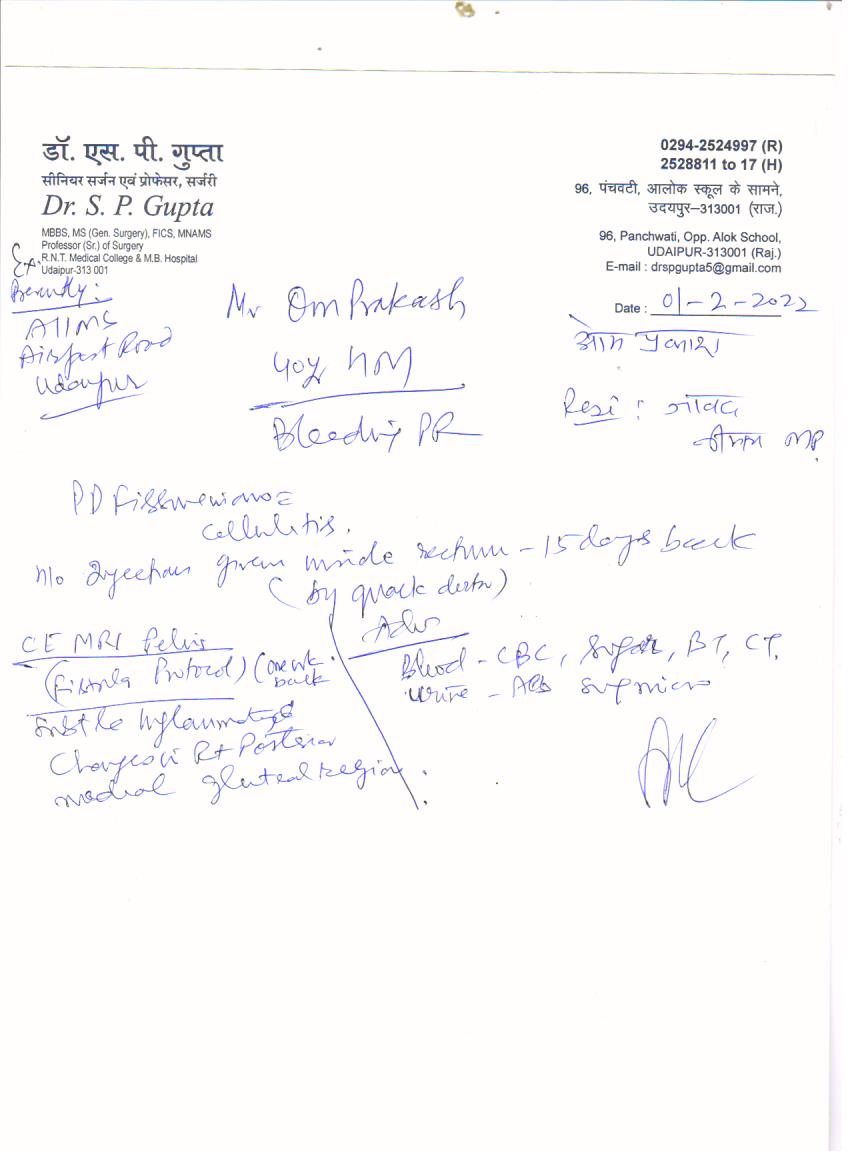 डॉ. एस. पी. गुप्ता
सीनियर सर्जन एवं प्रोफेसर, सर्जरी
Dr. S. P. Gupta
MBBS, MS (Gen. Surgery), FICS, MNAMS
Professor (Sr.) of Surgery
Ex. R.N.T. Medical College & M.B. Hospital
Udaipur-313 001
0294-2524997 (R)
2528811 to 17 (H)
96, पंचवटी, आलोक स्कूल के सामने,
उदयपुर–313001 (राज.)
96, Panchwati, Opp. Alok School,
UDAIPUR-313001 (Raj.)
E-mail : drspgupta5@gmail.com
Date : 01-2-2022
AIIMS
Airport Road
Udaipur
Mr Om Prakash
40y
Bleeding PR
ओम प्रकाश
Resi : जावद
नीमच MP.
cellulitis.
given inside rectum - 15 days back
(by quack doctor)
CE MRI Pelvis
(Fistula Protocol) (one wk back
Subtle Inflammatory
Changes in Rt Posterior
medial gluteal region.
Adv
Blood - CBC, Sugar, BT, CT,
Urine - micro